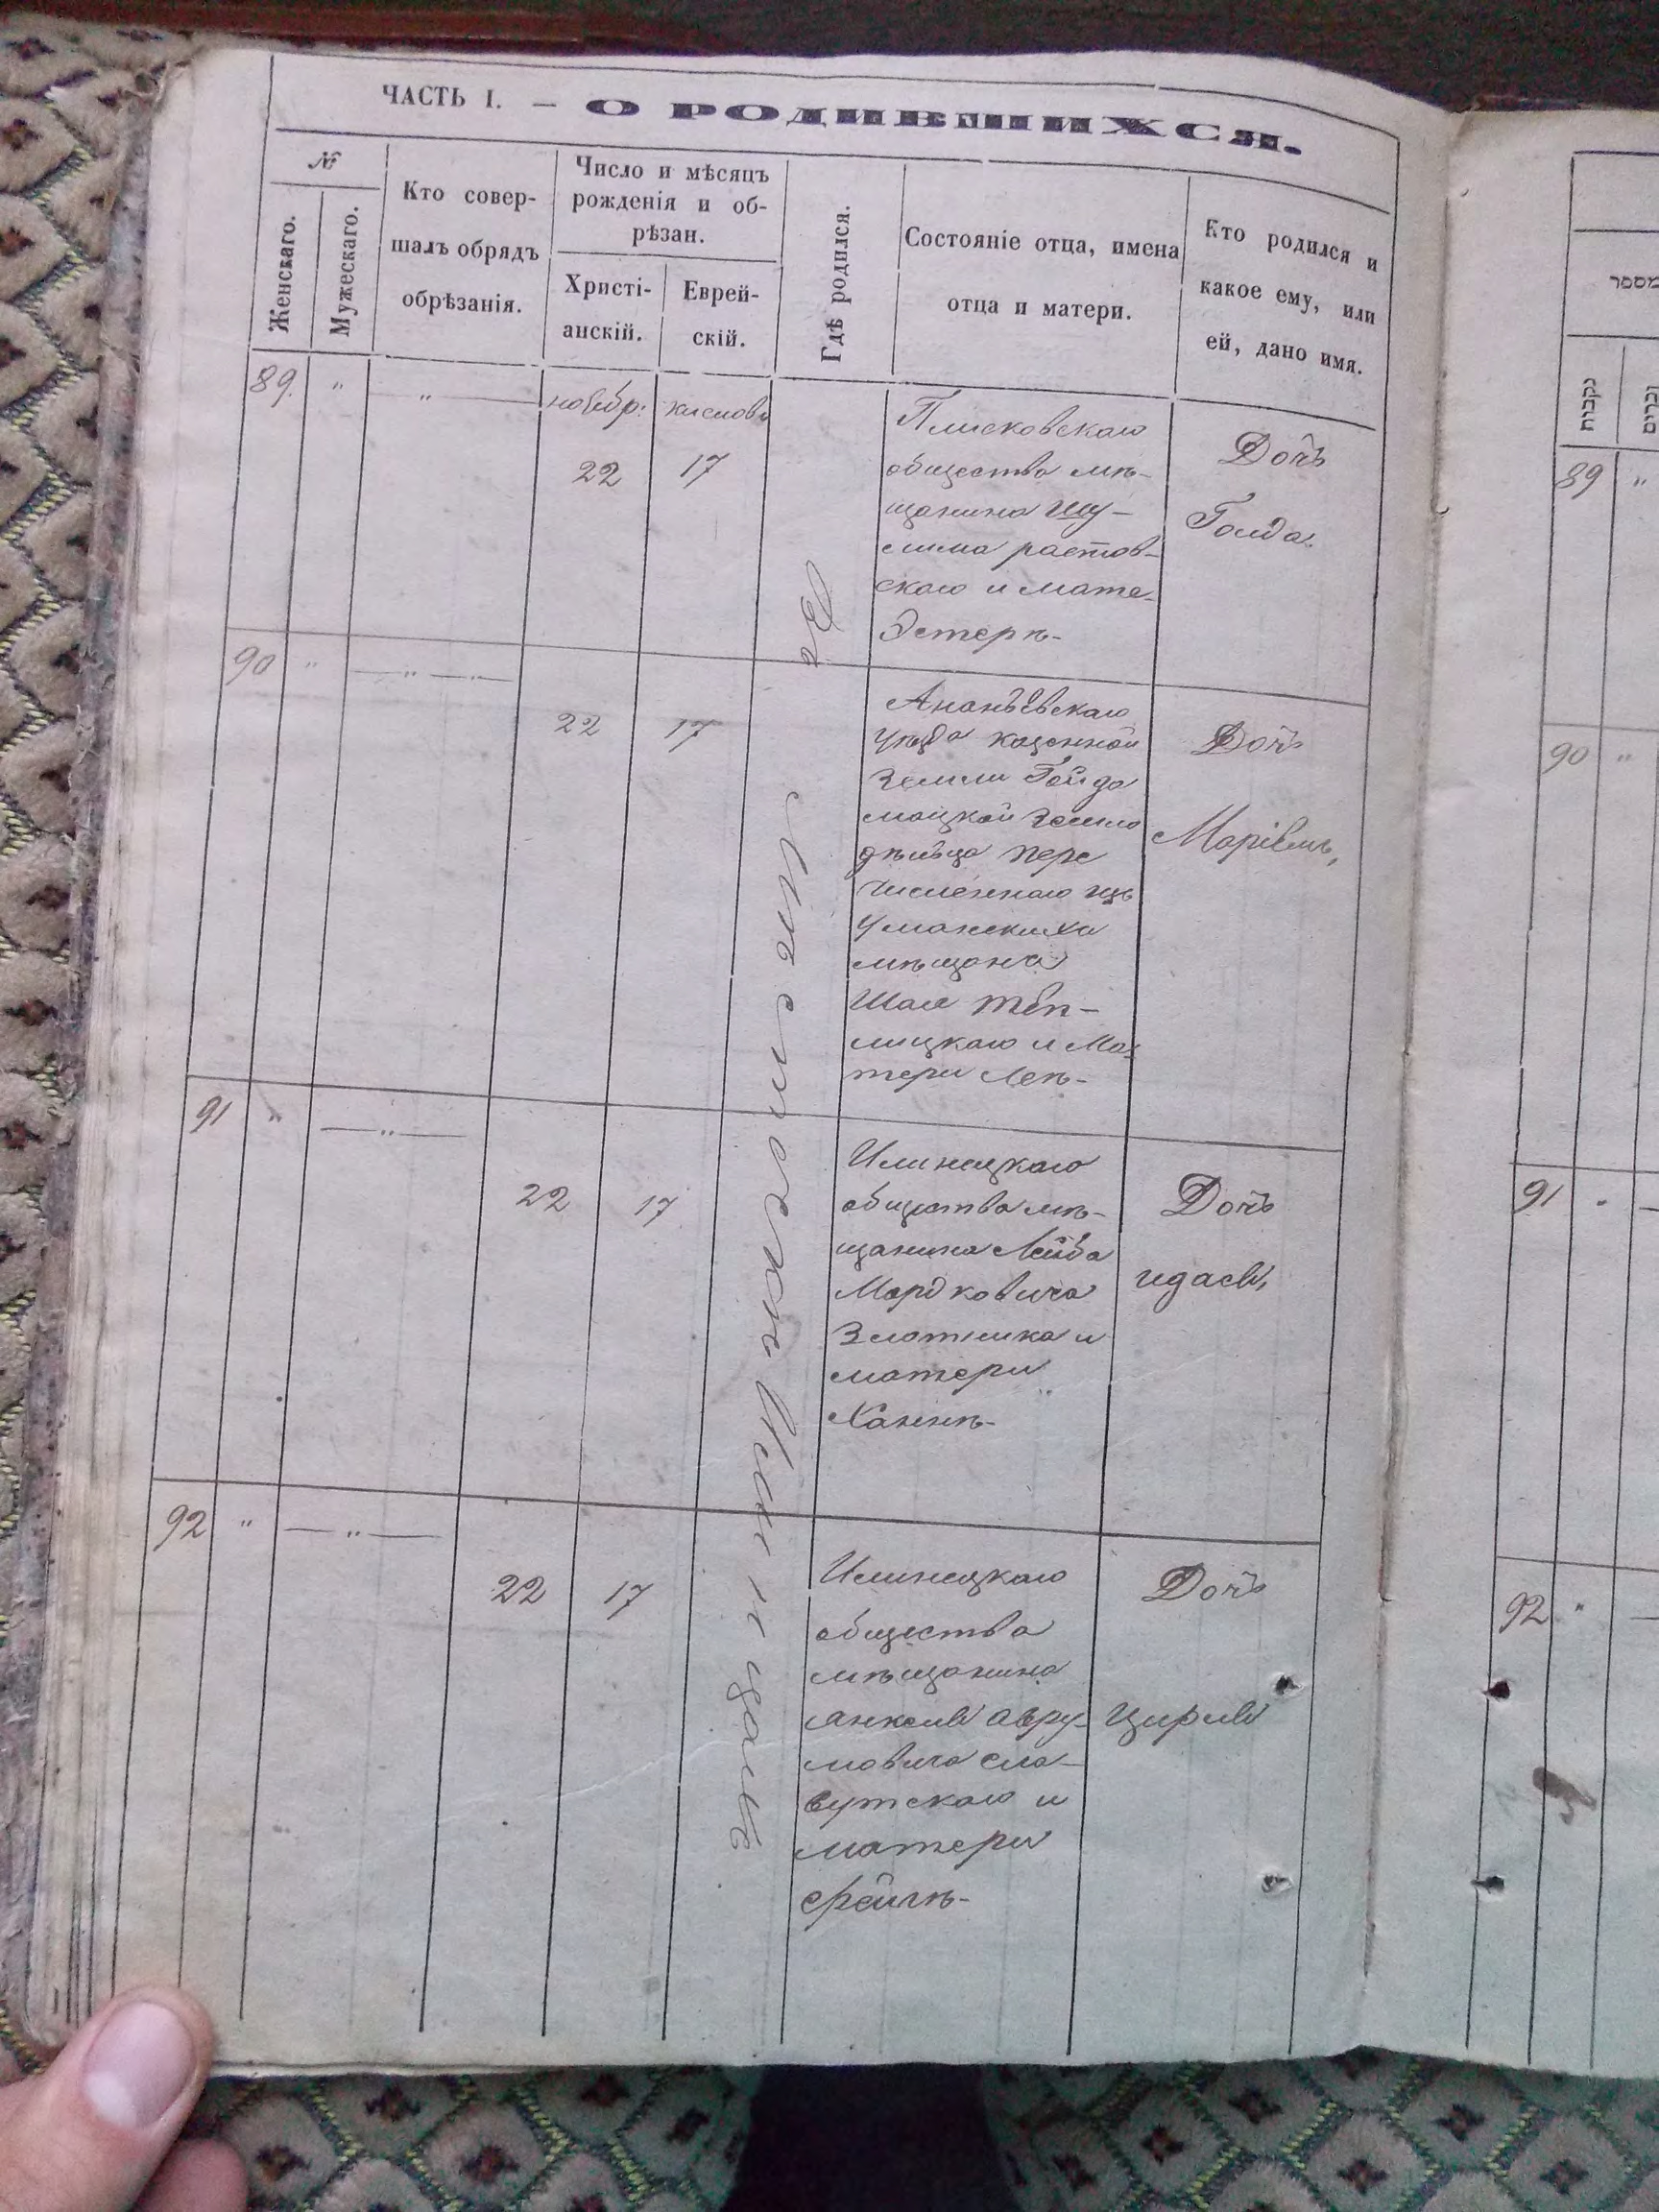 ЧАСТЬ I. — О РОДИВШИХСЯ.
№
Женскаго.
Мужескаго.
Кто совер-
шалъ обрядъ
обрѣзанія.
Число и мѣсяцъ
рожденія и об-
рѣзан.
Христі-
анскій.
Еврей-
скій.
Гдѣ родился.
Состояніе отца, имена
отца и матери.
Кто родился и
какое ему, или
ей, дано имя.
89. " " ноябр: кислова
22 17
Плисковскаго
общества мѣ-
щанина Шу-
лима растов-
скаго и мате-
Эстеръ-
Дочь
Голда.
90 " "
22 17
Ананьевскаго
уѣзда казенной
Земли Гайда
моцкой Земле
дѣльца пере
численнаго изъ
Уманскихъ
мѣщанъ
Шая Теп-
лицкаго и Ма-
тери Леѣ-
Дочь
91 " "
22 17
Илинецкаго
общества мѣ-
щанина Лейба
Мордковича
Злотника и
матери
Ханнѣ-
Дочь
92 " "
22 17
Илинецкаго
общества
мѣщанина
Янкеля Авру-
мовича сла-
вутскаго и
матери
Фейгѣ-
Дочь
Цирля
Въ
מספר
נקבות
זכרים
89 "
90 "
91
92